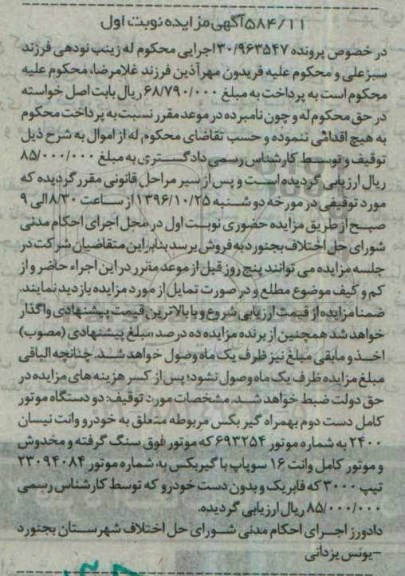 ۵۸۴/۱۱آگهی مزایده نوبت اول
در خصوص پرونده ۳۰/۹۶۳۵۴۷ اجرایی محکوم له زینب نودهی فرزند
سبزعلی و محکوم علیه فریدون مهرآذین فرزند غلامرضا، محکوم علیه
محکوم است به پرداخت به مبلغ ۶۸/۷۹۰/۰۰۰ ریال بابت اصل خواسته
در حق محکوم له و چون نامبرده در موعد مقرر نسبت به پرداخت محکوم
به هیچ اقدامی ننموده و حسب تقاضای محکوم له از اموال به شرح ذیل
توقیف و توسط کارشناس رسمی دادگستری به مبلغ ۸۵/۰۰۰/۰۰۰
ریال ارزیابی گردیده است و پس از سیر مراحل قانونی مقرر گردیده که
مورد توقیفی در مورخه دو شنبه ۱۳۹۶/۱۰/۲۵ از ساعت ۸/۳۰ الی ۹
صبح از طریق مزایده حضوری نوبت اول در محل اجرای احکام مدنی
شورای حل اختلاف بجنورد به فروش برسد بنابراین متقاضیان شرکت در
جلسه مزایده می توانند پنج روز قبل از موعد مقرر در این اجراء حاضر و از
کم و کیف موضوع مطلع و در صورت تمایل از مورد مزایده بازدید نمایند.
ضمنا مزایده از قیمت ارزیابی شروع و با بالاترین قیمت پیشنهادی واگذار
خواهد شد همچنین از برنده مزایده ده درصد مبلغ پیشنهادی (مصوب)
اخذ و مابقی مبلغ نیز ظرف یک ماه وصول خواهد شد. چنانچه الباقی
مبلغ مزایده ظرف یک ماه وصول نشود؛ پس از کسر هزینه های مزایده در
حق دولت ضبط خواهد شد. مشخصات مورد توقیف: دو دستگاه موتور
کامل دست دوم بهمراه گیربکس مربوطه متعلق به خودرو وانت نیسان
۲۴۰۰ به شماره موتور ۶۹۳۲۵۴ که موتور فوق سنگ گرفته و مخدوش
و موتور کامل وانت ۱۶ سوپاپ با گیربکس به شماره موتور ۳۳۰۹۴۰۸۴
تیپ ۳۰۰۰ که فابریک و بدون دست خودرو که توسط کارشناس رسمی
۸۵/۰۰۰/۰۰۰ ریال ارزیابی گردیده.
دادورز اجرای احکام مدنی شورای حل اختلاف شهرستان بجنورد
-یونس یزدانی